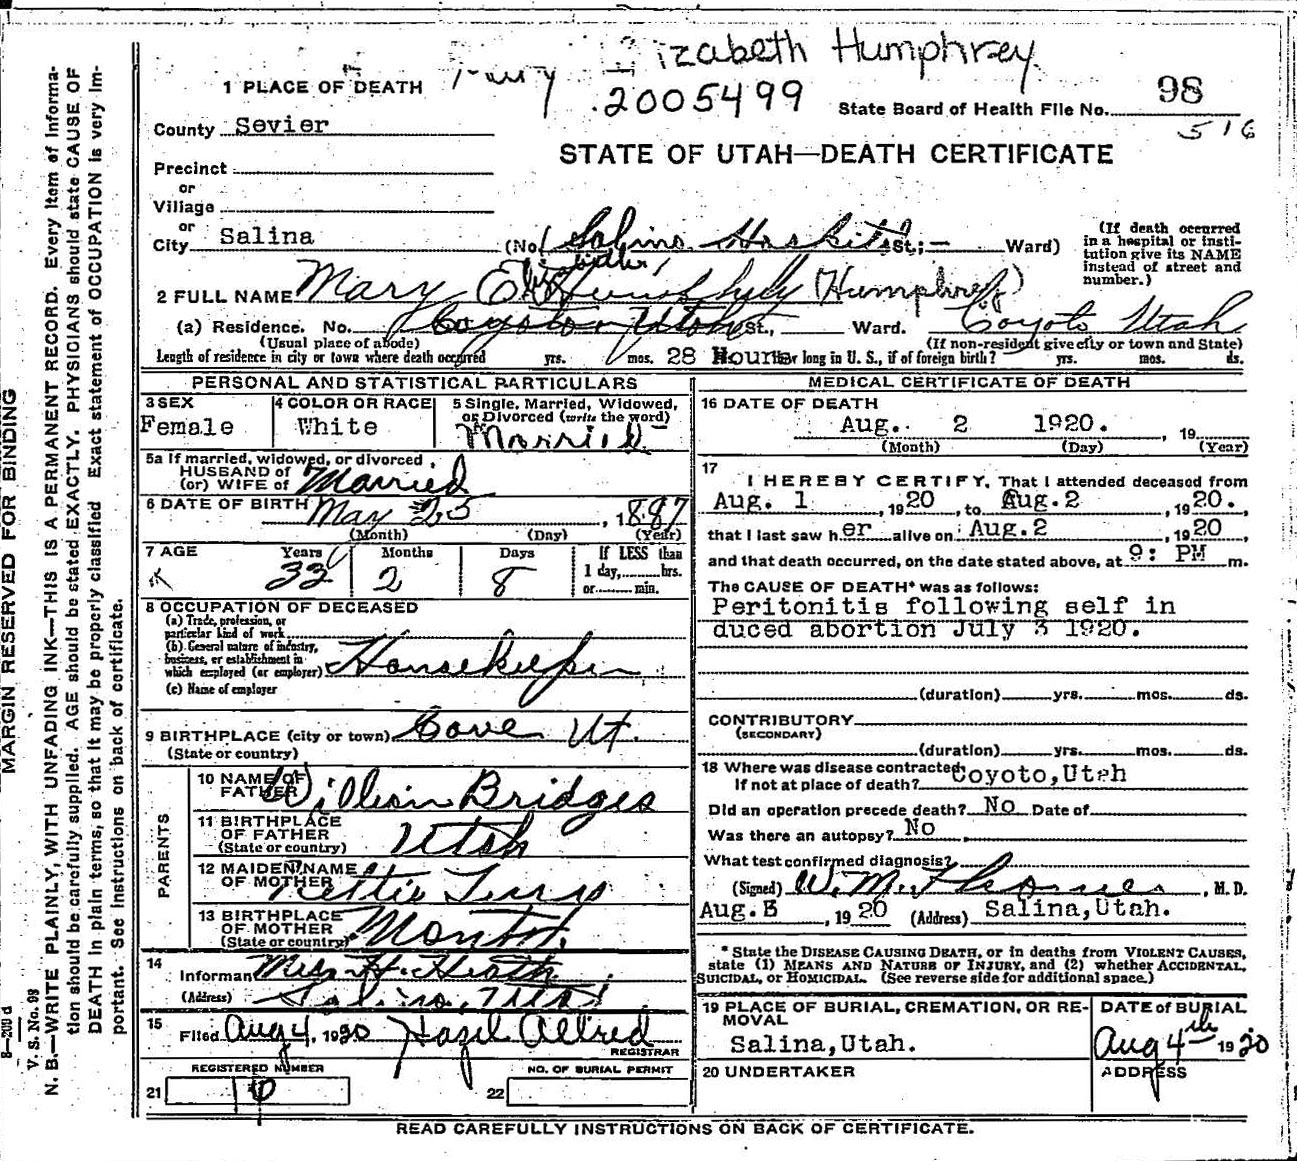 Elizabeth Humphrey
1 PLACE OF DEATH
2005499
State Board of Health File No. 98
516
County Sevier
STATE OF UTAH—DEATH CERTIFICATE
Precinct
or
Village
or
City Salina (No. Salina Hospital St.; — Ward)
(If death occurred in a hospital or insti-
tution give its NAME
instead of street and
number.)
2 FULL NAME Mary Elizabeth (Humphrey)
(a) Residence. No. Coyoto Utah St., Ward. Coyoto Utah
(Usual place of abode) (If non-resident give city or town and State)
Length of residence in city or town where death occurred yrs. mos. 28 Hours How long in U. S., if of foreign birth? yrs. mos. ds.
PERSONAL AND STATISTICAL PARTICULARS
3 SEX
Female
4 COLOR OR RACE
White
5 Single, Married, Widowed,
or Divorced (write the word)
Married
5a If married, widowed, or divorced
HUSBAND of
(or) WIFE of Married
6 DATE OF BIRTH May 25, 1887
(Month) (Day) (Year)
7 AGE Years Months Days If LESS than
1 day, hrs.
or min.
33 2 8
8 OCCUPATION OF DECEASED
(a) Trade, profession, or
particular kind of work
(b) General nature of industry,
business, or establishment in
which employed (or employer) Housekeeper
(c) Name of employer
9 BIRTHPLACE (city or town) Cove Ut.
(State or country)
PARENTS
10 NAME OF
FATHER William Bridges
11 BIRTHPLACE
OF FATHER
(State or country) Utah
12 MAIDEN NAME
OF MOTHER Nettie
13 BIRTHPLACE
OF MOTHER
(State or country)
14
Informant Mrs. H. Heath
(Address) Salina, Utah
15
Filed Aug 4, 1920 Hazel Allred
REGISTRAR
REGISTERED NUMBER
21 10
NO. OF BURIAL PERMIT
22
MEDICAL CERTIFICATE OF DEATH
16 DATE OF DEATH
Aug. 2 1920. , 19
(Month) (Day) (Year)
17
I HEREBY CERTIFY, That I attended deceased from
Aug. 1, 1920, to Aug.2, 1920.,
that I last saw her alive on Aug.2, 1920,
and that death occurred, on the date stated above, at 9: PM m.
The CAUSE OF DEATH* was as follows:
Peritonitis following self in
duced abortion July 3 1920.
(duration) yrs. mos. ds.
CONTRIBUTORY
(SECONDARY)
(duration) yrs. mos. ds.
18 Where was disease contracted
If not at place of death? Coyoto,Utah
Did an operation precede death? No Date of
Was there an autopsy? No
What test confirmed diagnosis?
(Signed) W. M. , M. D.
Aug. 3, 1920 (Address) Salina,Utah.
* State the DISEASE CAUSING DEATH, or in deaths from VIOLENT CAUSES,
state (1) MEANS AND NATURE OF INJURY, and (2) whether ACCIDENTAL,
SUICIDAL, or HOMICIDAL. (See reverse side for additional space.)
19 PLACE OF BURIAL, CREMATION, OR RE-
MOVAL
Salina,Utah.
DATE of BURIAL
Aug 4th 1920
20 UNDERTAKER
ADDRESS
READ CAREFULLY INSTRUCTIONS ON BACK OF CERTIFICATE.
MARGIN RESERVED FOR BINDING
V. S. No. 98
N. B.—WRITE PLAINLY, WITH UNFADING INK—THIS IS A PERMANENT RECORD. Every Item of Informa-
tion should be carefully supplied. AGE should be stated EXACTLY. PHYSICIANS should state CAUSE OF
DEATH in plain terms, so that it may be properly classified. Exact statement of OCCUPATION is very im-
portant. See Instructions on back of certificate.